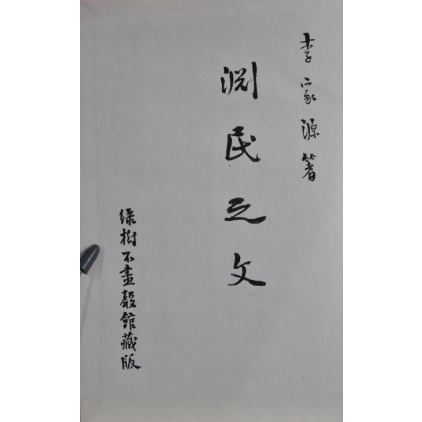 李家源著
淵民之文
綠樹不盡聲館藏版